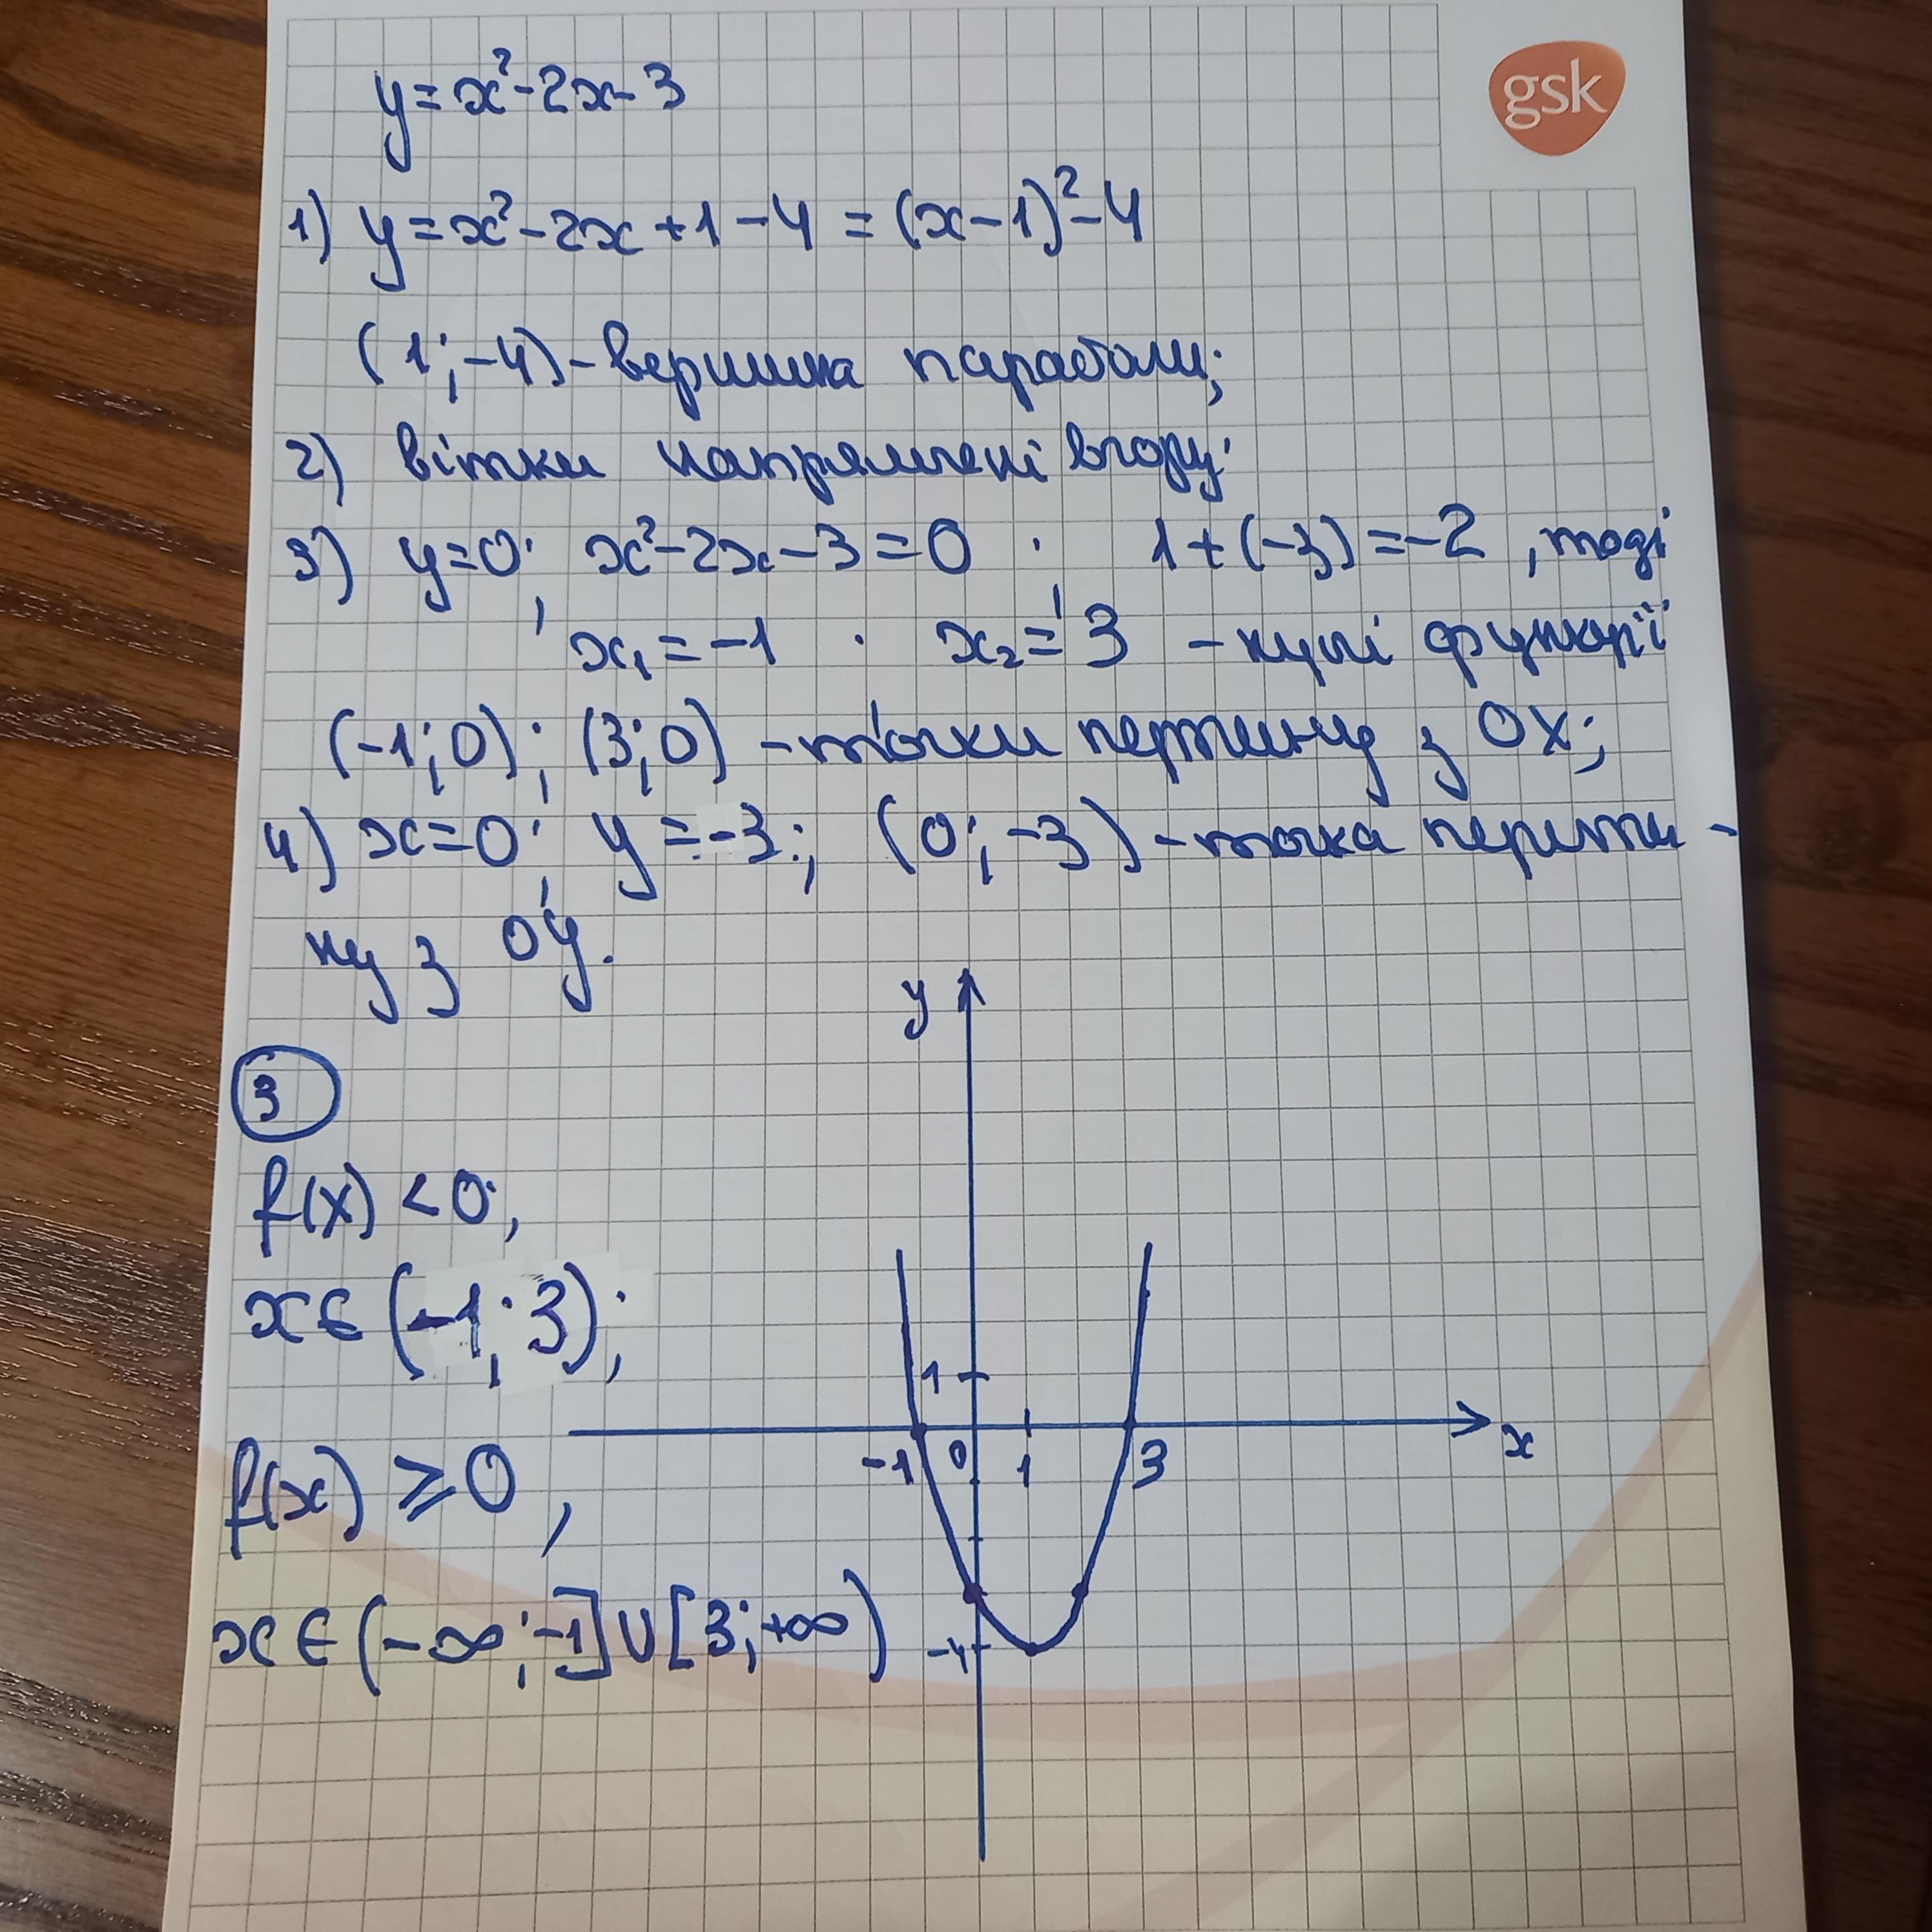 gsk
y=x²-2x-3
1) y=x²-2x+1-4=(x-1)²-4
(1;-4)-вершина параболи;
2) вітки напрямлені вгору;
3) y=0; x²-2x-3=0; 1+(-3)=-2, тоді
x₁=-1; x₂=3 -нулі функції
(-1;0); (3;0) -точки перетину з OX;
4) x=0; y=-3; (0;-3)-точка перети-
ну з OY.
3
f(x)<0;
x∈(-1;3);
f(x)≥0,
x∈(-∞;-1]∪[3;+∞)
y
1
-1 0 1 3 x
-4